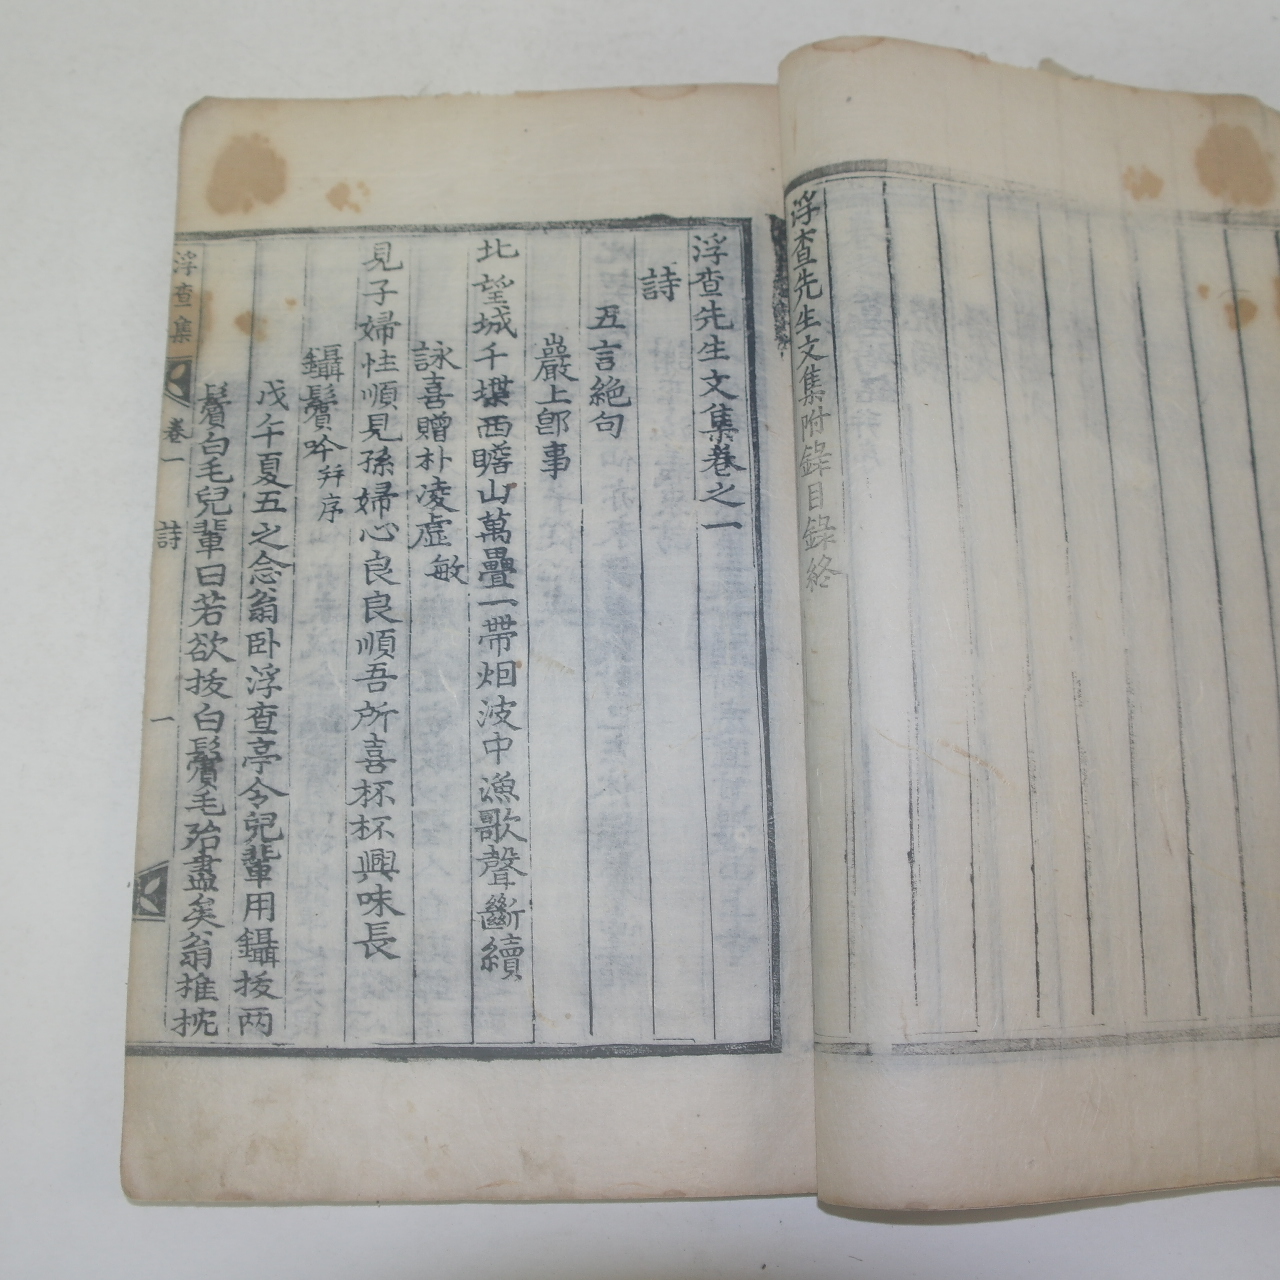 浮查先生文集附錄目錄終
浮查先生文集卷之一
詩
五言絶句
巖上卽事
北望城千堞西瞻山萬疊一帶烟波中漁歌聲斷續
詠喜贈朴凌虛敏
見子婦性順見孫婦心良良順吾所喜杯杯興味長
鑷鬢吟幷序
戊午夏五之念翁卧浮查亭令兒輩用鑷拔两
鬢白毛兒輩曰若欲拔白鬢毛殆盡矣翁推枕
浮查集 卷一 詩 一